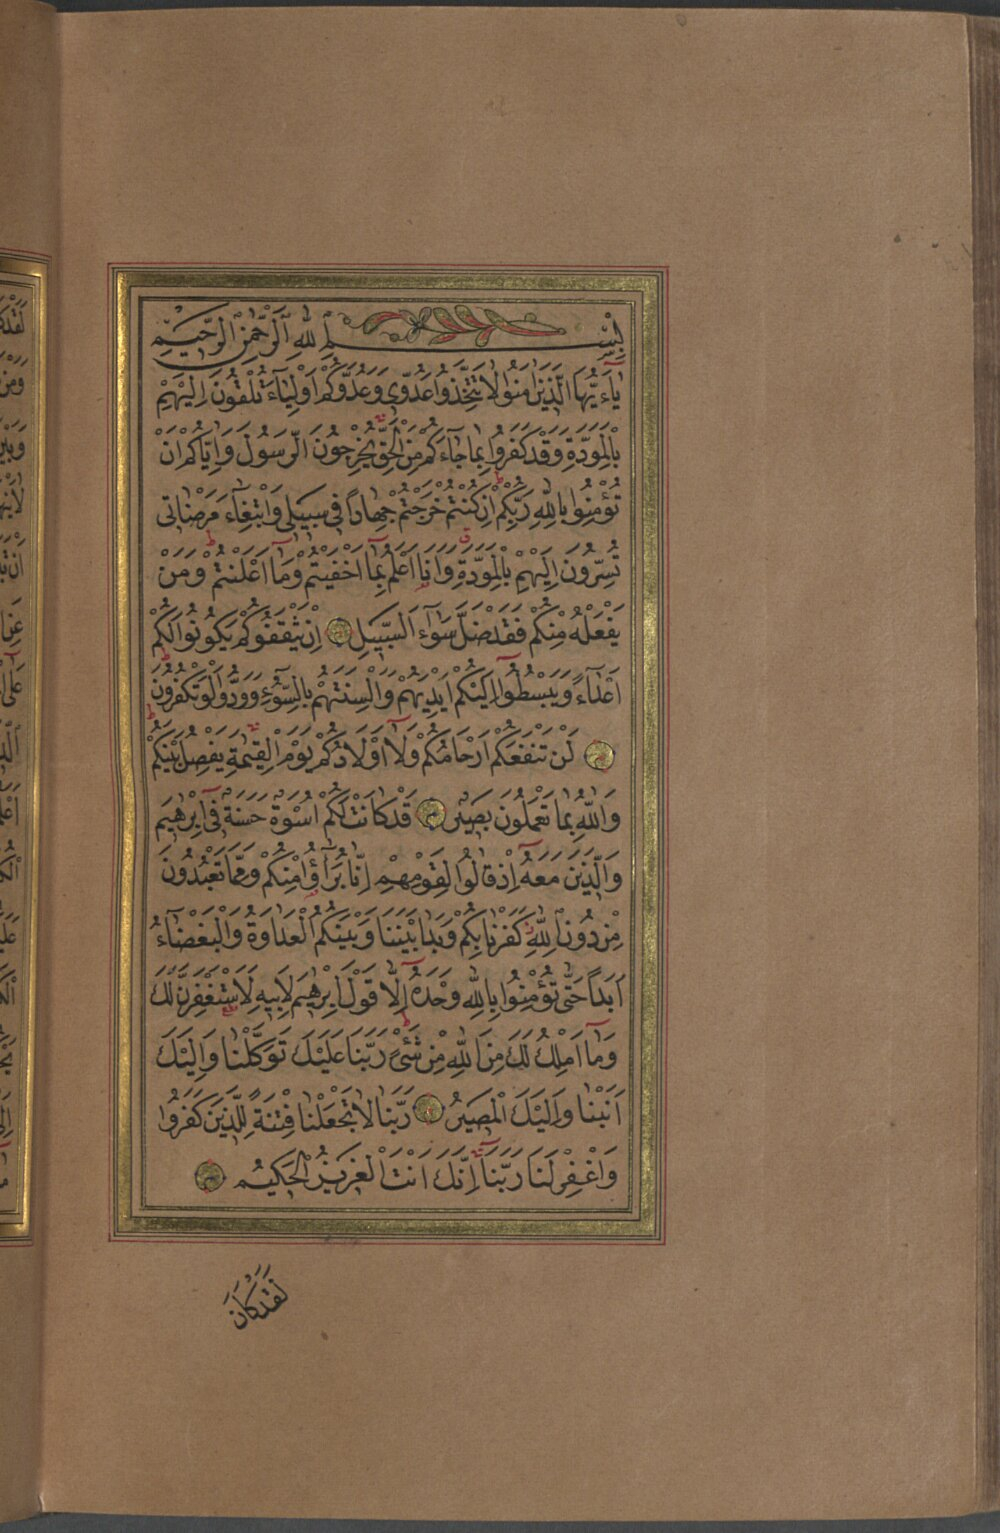 بِسْمِ اللّٰهِ الرَّحْمٰنِ الرَّحِيمِ
يَٓا اَيُّهَا الَّذِينَ اٰمَنُوا لَا تَتَّخِذُوا عَدُوِّى وَعَدُوَّكُمْ اَوْلِيَٓاءَ تُلْقُونَ اِلَيْهِمْ
بِالْمَوَدَّةِ وَقَدْ كَفَرُوا بِمَا جَٓاءَكُمْ مِنَ الْحَقِّ يُخْرِجُونَ الرَّسُولَ وَاِيَّاكُمْ اَنْ
تُؤْمِنُوا بِاللّٰهِ رَبِّكُمْ اِنْ كُنْتُمْ خَرَجْتُمْ جِهَادًا فِى سَبِيلِى وَابْتِغَٓاءَ مَرْضَاتِى
تُسِرُّونَ اِلَيْهِمْ بِالْمَوَدَّةِ وَاَنَا اَعْلَمُ بِمَٓا اَخْفَيْتُمْ وَمَٓا اَعْلَنْتُمْ وَمَنْ
يَفْعَلْهُ مِنْكُمْ فَقَدْ ضَلَّ سَوَٓاءَ السَّبِيلِ اِنْ يَثْقَفُوكُمْ يَكُونُوا لَكُمْ
اَعْدَٓاءً وَيَبْسُطُٓوا اِلَيْكُمْ اَيْدِيَهُمْ وَاَلْسِنَتَهُمْ بِالسُّٓوءِ وَوَدُّوا لَوْ تَكْفُرُونَ
لَنْ تَنْفَعَكُمْ اَرْحَامُكُمْ وَلَٓا اَوْلَادُكُمْ يَوْمَ الْقِيٰمَةِ يَفْصِلُ بَيْنَكُمْ
وَاللّٰهُ بِمَا تَعْمَلُونَ بَصِيرٌ قَدْ كَانَتْ لَكُمْ اُسْوَةٌ حَسَنَةٌ فِٓى اِبْرٰهِيمَ
وَالَّذِينَ مَعَهُٓ اِذْ قَالُوا لِقَوْمِهِمْ اِنَّا بُرَءٰٓؤُا مِنْكُمْ وَمِمَّا تَعْبُدُونَ
مِنْ دُونِ اللّٰهِ كَفَرْنَا بِكُمْ وَبَدَا بَيْنَنَا وَبَيْنَكُمُ الْعَدَاوَةُ وَالْبَغْضَٓاءُ
اَبَدًا حَتّٰى تُؤْمِنُوا بِاللّٰهِ وَحْدَهُٓ اِلَّا قَوْلَ اِبْرٰهِيمَ لِاَبِيهِ لَاَسْتَغْفِرَنَّ لَكَ
وَمَٓا اَمْلِكُ لَكَ مِنَ اللّٰهِ مِنْ شَىْءٍ رَبَّنَا عَلَيْكَ تَوَكَّلْنَا وَاِلَيْكَ
اَنَبْنَا وَاِلَيْكَ الْمَصِيرُ رَبَّنَا لَا تَجْعَلْنَا فِتْنَةً لِلَّذِينَ كَفَرُوا
وَاغْفِرْ لَنَا رَبَّنَٓا اِنَّكَ اَنْتَ الْعَزِيزُ الْحَكِيمُ
لَقَدْ كَانَ